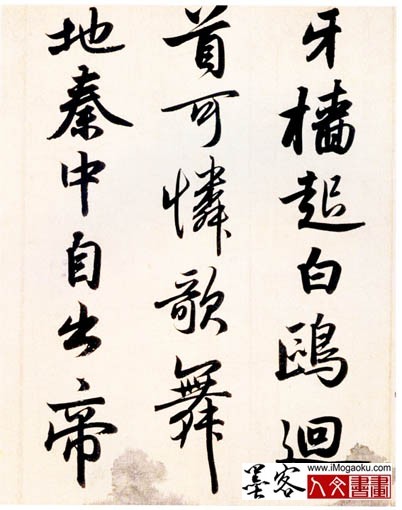 牙檣起白鷗迴
首可憐歌舞
地秦中自古帝
墨客
www.iMogaoku.com
人文書畫